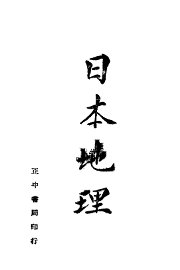 日本地理
正中書局印行